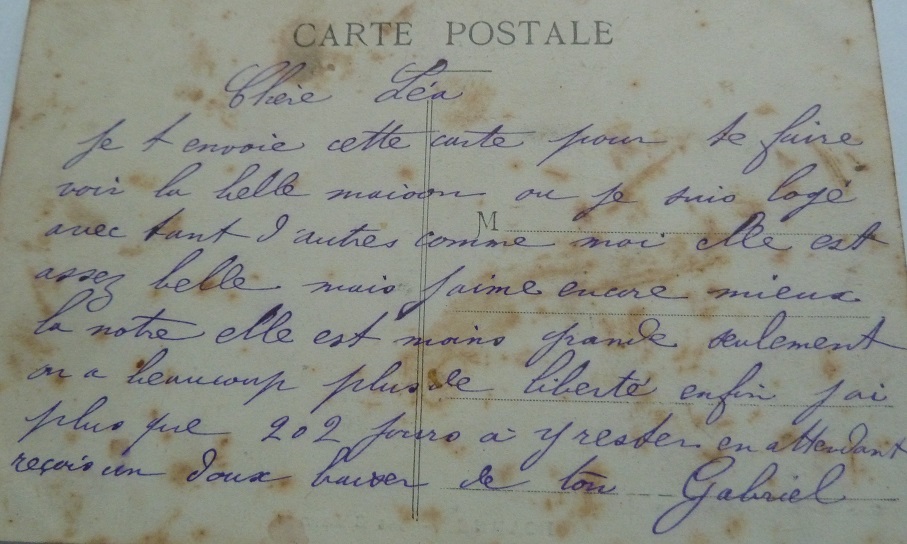 CARTE POSTALE
Chère Léa
je t envoie cette carte pour te faire
voir la belle maison ou je suis logé
M
avec tant d'autres comme moi elle est
assez belle mais j'aime encore mieux
la notre elle est moins grande seulement
on a beaucoup plus de liberté enfin j'ai
plus que 202 jours à y rester en attendant
reçois un doux baiser de ton Gabriel